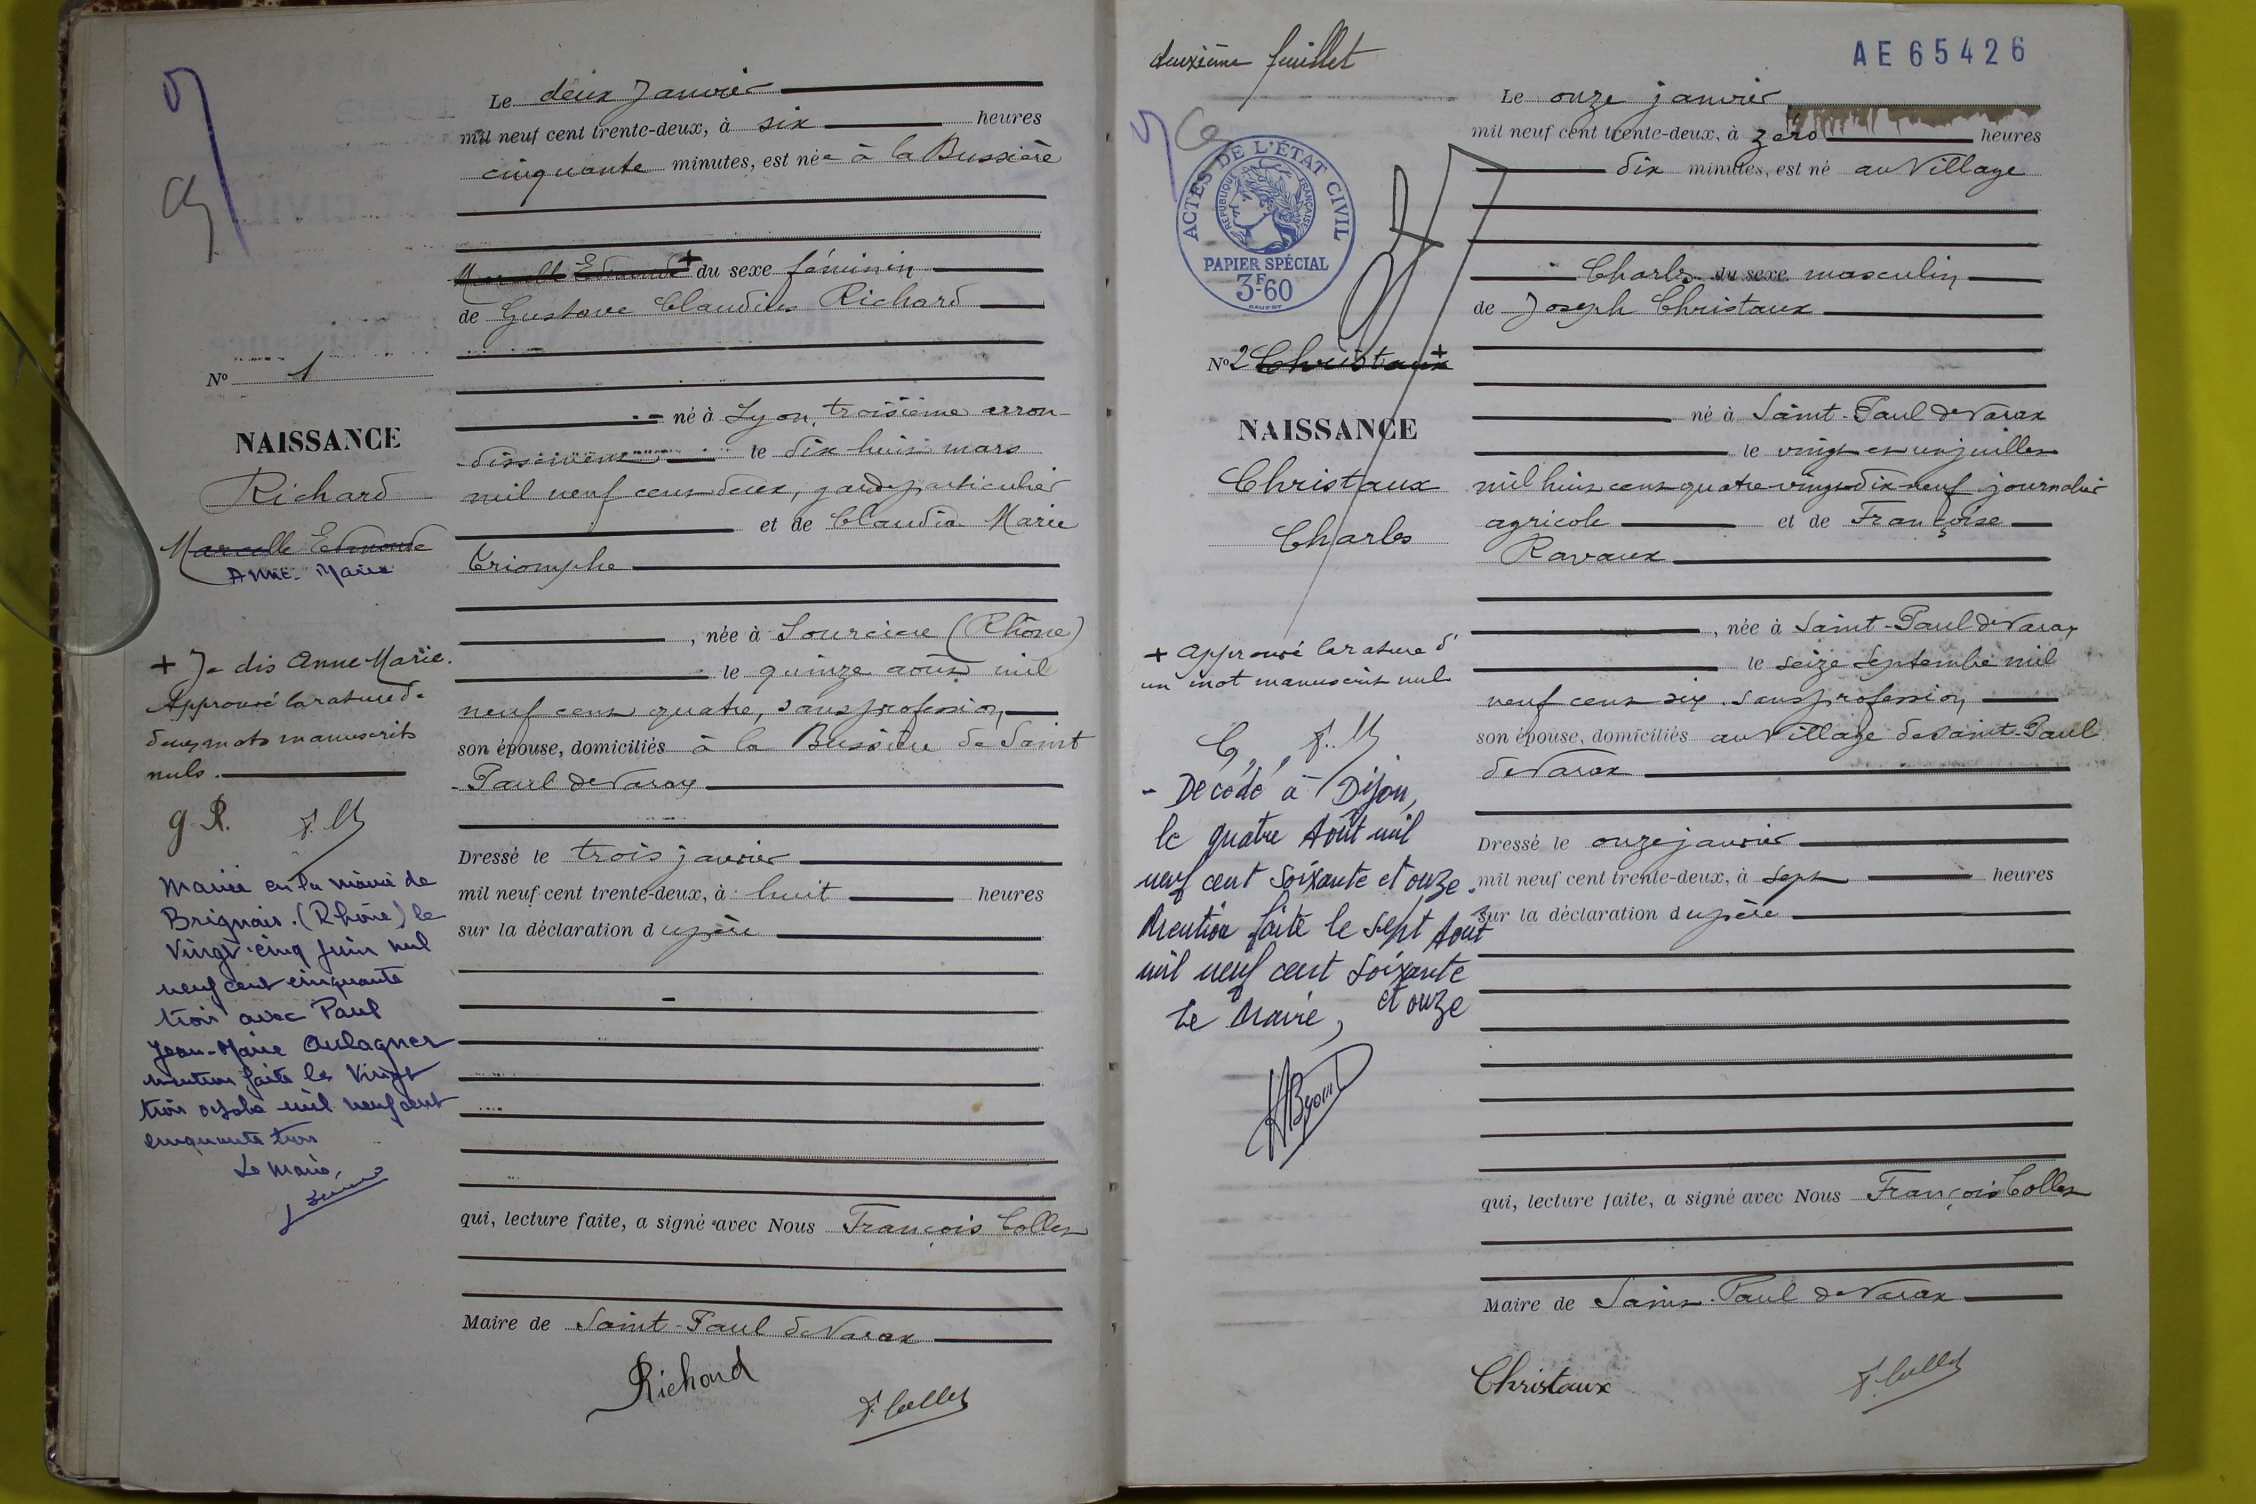 Le deux Janvier
mil neuf cent trente-deux, à six heures
cinquante minutes, est née à la Bussière
Marcelle Edmonde + du sexe féminin
de Gustave Claudius Richard
né à Lyon, troisième arron-
dissement le dix huit mars
mil neuf cent deux, garde particulier
et de Claudia Marie
Triomphe
, née à Sourcieux (Rhône)
le quinze août mil
neuf cent quatre, sans profession,
son épouse, domiciliés à la Bussière de Saint
-Paul de Varax
Dressé le trois janvier
mil neuf cent trente-deux, à huit heures
sur la déclaration du père
qui, lecture faite, a signé avec Nous François Collet
Maire de Saint-Paul de Varax
Richard
F. Collet
No 1
NAISSANCE
Richard
Marcelle Edmonde
Anne-Marie
+ Je dis Anne-Marie.
Approuvé la rature de
deux mots manuscrits
nuls.
g. R.
Mariée en la mairie de
Brignais. (Rhône) le
Vingt-cinq juin mil
neuf cent cinquante
trois avec Paul
Jean-Marie Aulagner
mention faite le Vingt
trois octobre mil neuf cent
cinquante trois
Le Maire,
deuxième feuillet
AE 65426
ACTES DE L'ÉTAT CIVIL
RÉPUBLIQUE FRANÇAISE
PAPIER SPÉCIAL
3F60
No 2 Christaux +
NAISSANCE
Christaux
Charles
+ Approuvé la rature d'
un mot manuscrit nul
- Décédé à Dijon,
le quatre Août mil
neuf cent soixante et onze.
Mention faite le sept Août
mil neuf cent soixante
et onze
Le Maire,
Le onze janvier
mil neuf cent trente-deux, à zéro heures
dix minutes, est né au Village
Charles du sexe masculin
de Joseph Christaux
né à Saint-Paul de Varax
le vingt et un juillet
mil huit cent quatre vingt dix neuf journalier
agricole et de Françoise
Ravaux
, née à Saint-Paul de Varax
le seize Septembre mil
neuf cent six, sans profession,
son épouse, domiciliés au Village de Saint-Paul
de Varax
Dressé le onze janvier
mil neuf cent trente-deux, à sept heures
sur la déclaration du père
qui, lecture faite, a signé avec Nous François Collet
Maire de Saint-Paul de Varax
Christaux
F. Collet